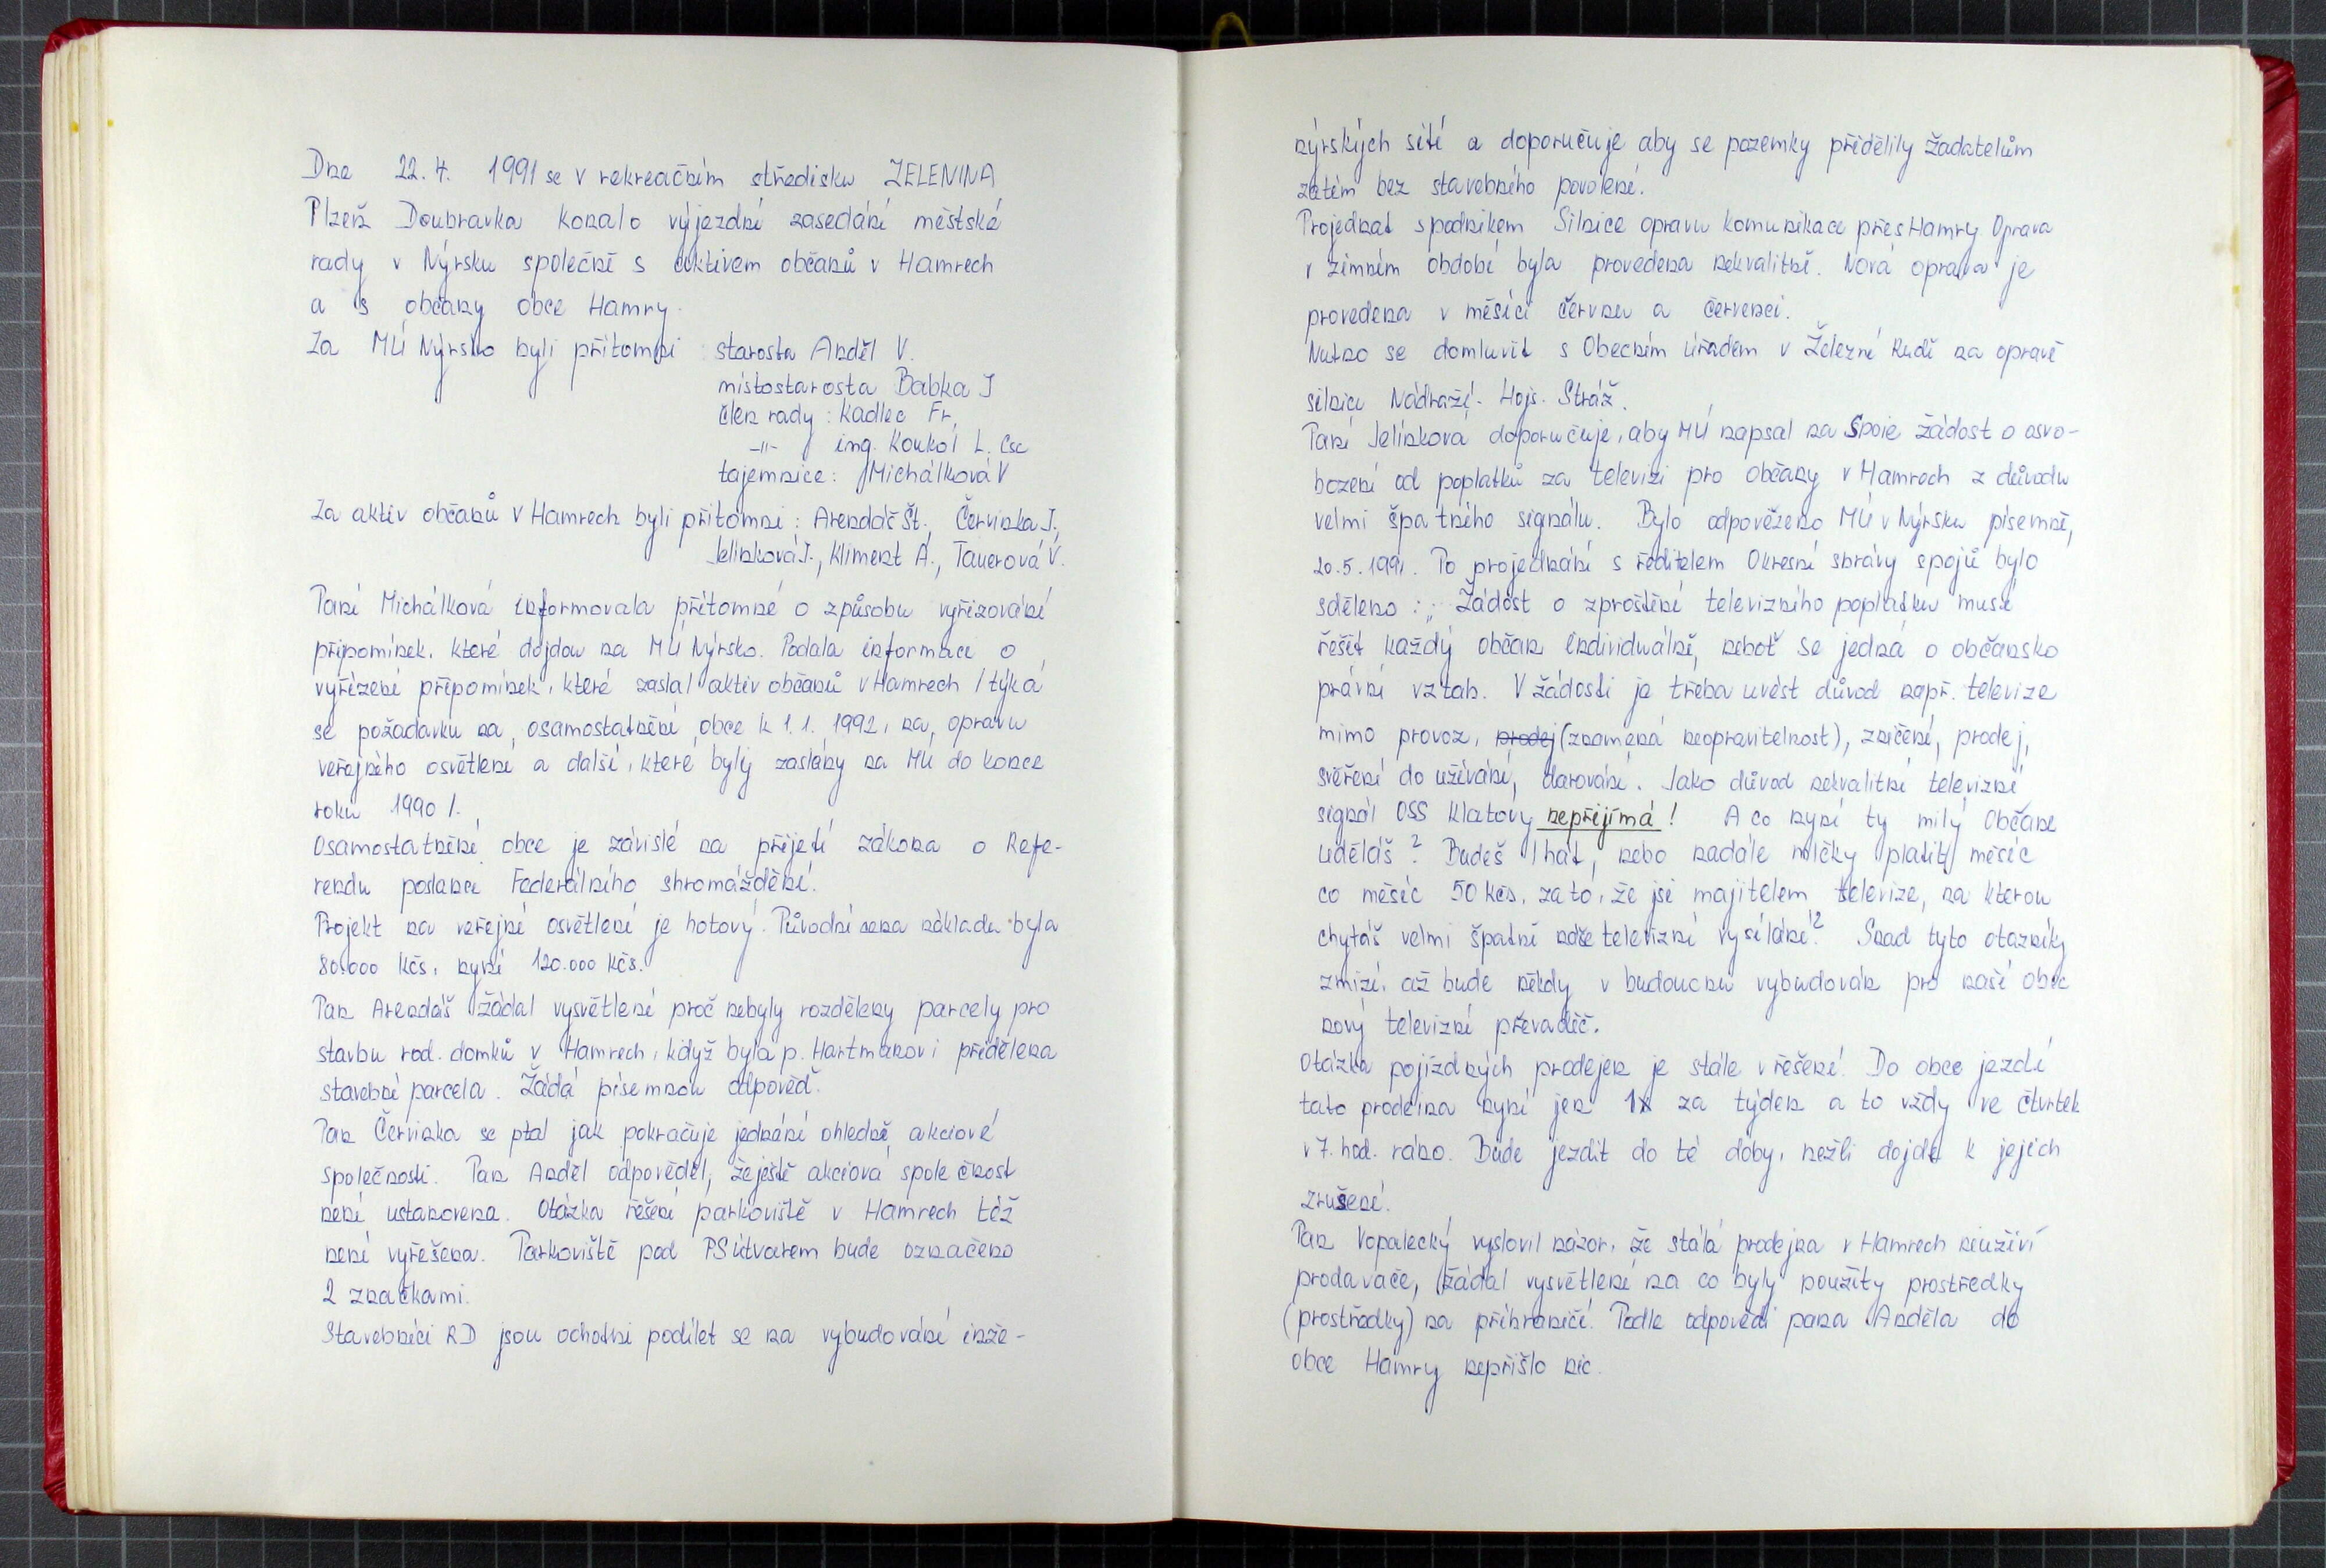 Dne 22. 4. 1991 se v rekreačním středisku ZELENINA
Plzeň Doubravka konalo výjezdní zasedání městské
rady v Nýrsku společně s aktivem občanů v Hamrech
a s občany obce Hamry.
Za MÚ Nýrsko byli přítomni: starosta Anděl V.
místostarosta Babka J
člen rady: Kadlec Fr,
-"- ing. Koukol L. Csc
tajemnice: Michálková V
Za aktiv občanů v Hamrech byli přítomni: Arendáč Št., Červinka J.,
Jelínková J., Kliment A., Tauerová V.
Paní Michálková informovala přítomné o způsobu vyřizování
připomínek, které dojdou na MÚ Nýrsko. Podala informaci o
vyřízení připomínek, které zaslal aktiv občanů v Hamrech /týká
se požadavku na osamostatnění obce k 1. 1. 1992, na opravu
veřejného osvětlení a další, které byly zaslány na MÚ do konce
roku 1990/.
Osamostatnění obce je závislé na přijetí zákona o Refe-
rendu poslanci Federálního shromáždění.
Projekt na veřejné osvětlení je hotový. Původní cena nákladu byla
80.000 Kčs, nyní 120.000 Kčs.
Pan Arendáš žádal vysvětlení proč nebyly rozděleny parcely pro
stavbu rod. domků v Hamrech, když byla p. Hartmanovi přidělena
stavební parcela. Žádá písemnou odpověď.
Pan Červinka se ptal jak pokračuje jednání ohledně akciové
společnosti. Pan Anděl odpověděl, že ještě akciová společnost
není ustanovena. Otázka řešení parkoviště v Hamrech též
není vyřešena. Parkoviště pod PS útvarem bude označeno
2 značkami.
Stavebníci RD jsou ochotni podílet se na vybudování inže-
nýrských sítí a doporučuje aby se pozemky přidělily žadatelům
zatím bez stavebního povolení.
Projednat s podnikem Silnice opravu komunikace přes Hamry Oprava
v zimním období byla provedena nekvalitně. Nová oprava je
provedena v měsíci červnu a červenci.
Nutno se domluvit s Obecním úřadem v Železné Rudě na opravě
silnice Nádraží - Hojs. Stráž.
Paní Jelínková doporučuje, aby MÚ napsal na Spoje žádost o osvo-
bození od poplatků za televizi pro občany v Hamrech z důvodu
velmi špatného signálu. Bylo odpovězeno MÚ v Nýrsku písemně,
20. 5. 1991. Po projednání s ředitelem Okresní správy spojů bylo
sděleno: „Žádost o zproštění televizního poplatku musí
řešit každý občan individuálně, neboť se jedná o občansko
právní vztah. V žádosti je třeba uvést důvod např. televize
mimo provoz, prodej (znamená neopravitelnost), zničení, prodej,
svěření do užívání, darování. Jako důvod nekvalitní televizní
signál OSS Klatovy nepřijímá! A co nyní ty milý Občane
uděláš? Budeš lhát, nebo nadále mlčky platit měsíc
co měsíc 50 Kčs. za to, že jsi majitelem televize, na kterou
chytáš velmi špatně naše televizní vysílání!? Snad tyto otazníky
zmizí, až bude někdy v budoucnu vybudován pro naši obec
nový televizní převaděč.
Otázka pojízdných prodejen je stále v řešení. Do obce jezdí
tato prodejna nyní jen 1x za týden a to vždy ve čtvrtek
v 7. hod. ráno. Bude jezdit do té doby, nežli dojde k jejich
zrušení.
Pan Vopalecký vyslovil názor, že stálá prodejna v Hamrech neuživí
prodavače, žádal vysvětlení na co byly použity prostředky
(prostředky) na příhraničí. Podle odpovědi pana Anděla do
obce Hamry nepřišlo nic.